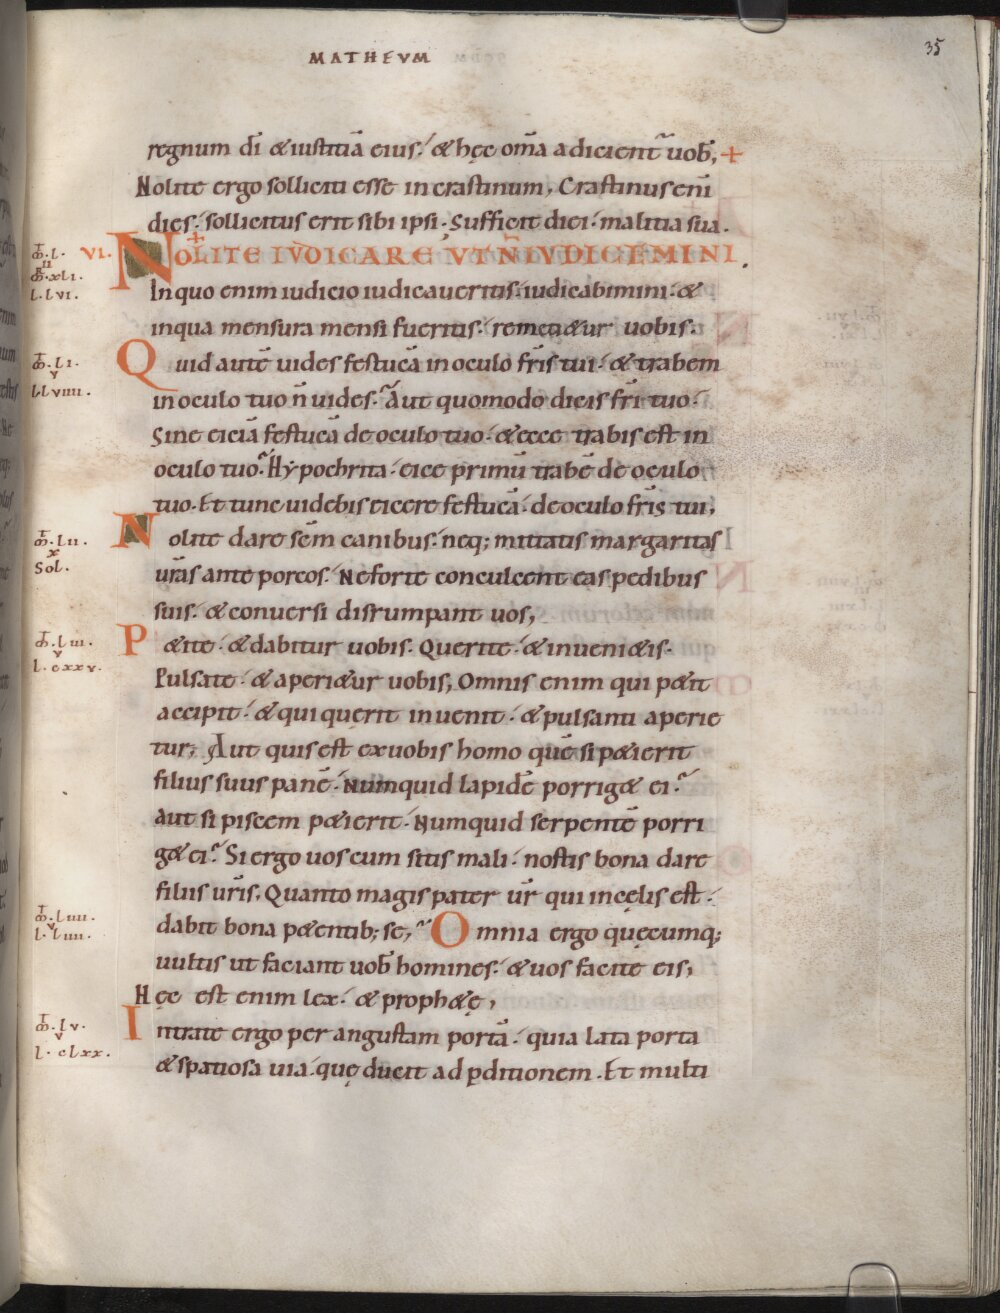 MATHEVM
35
regnum dī & iustitiā eius. & hęc om̄a adicient᷑ uob̄, +
Nolite ergo solliciti esse in crastinum, Crastinus enī
dies. sollicitus erit sibi ipsi. Sufficit diei. malitia sua.
VI. NOLITE IVDICARE VT N̄ IVDICEMINI.
In quo enim iudicio iudicaueritis. iudicabimini. &
in qua mensura mensi fueritis. remeti&ur uobis.
Quid autē uides festucā in oculo fr̄is tui. & trabem
in oculo tuo n̄ uides. Aut quomodo dicis fr̄i tuo.
Sine eiciā festucā de oculo tuo. & ecce trabis est in
oculo tuo. Hypochrita. eice primū trabē de oculo
tuo. Et tunc uidebis eicere festucā. de oculo fr̄is tui,
Nolite dare sc̄m canibus. neq; mittatis margaritas
ur̄as ante porcos. Ne forte conculcent eas pedibus
suis. & conuersi disrumpant uos,
P&ite. & dabitur uobis. Querite. & inueni&is.
Pulsate. & aperi&ur uobis, Omnis enim qui p&it
accipit. & qui querit inuenit. & pulsanti aperie
tur, Aut quis est ex uobis homo quē si p&ierit
filius suus panē. Numquid lapidē porrig& ei.
Aut si piscem p&ierit. Numquid serpentē porri
g& ei. Si ergo uos cum sitis mali. nostis bona dare
filiis ur̄is. Quanto magis pater ur̄ qui in cęlis est.
dabit bona p&entib; se, Omnia ergo quęcumq;
uultis ut faciant uob̄ homines. & uos facite eis,
Hęc est enim lex. & proph&ę,
Intrate ergo per angustam portā. quia lata porta
& spatiosa uia. quę ducit ad ꝑditionem. Et multi
m̄. l.
II
m̄. xli.
l. lvi.
m̄. li.
v
l. lviiii.
m̄. lii.
x
Sol.
m̄. liii.
v
l. cxxv.
m̄. liiii.
v
l. liiii.
m̄. lv.
v
l. clxx.